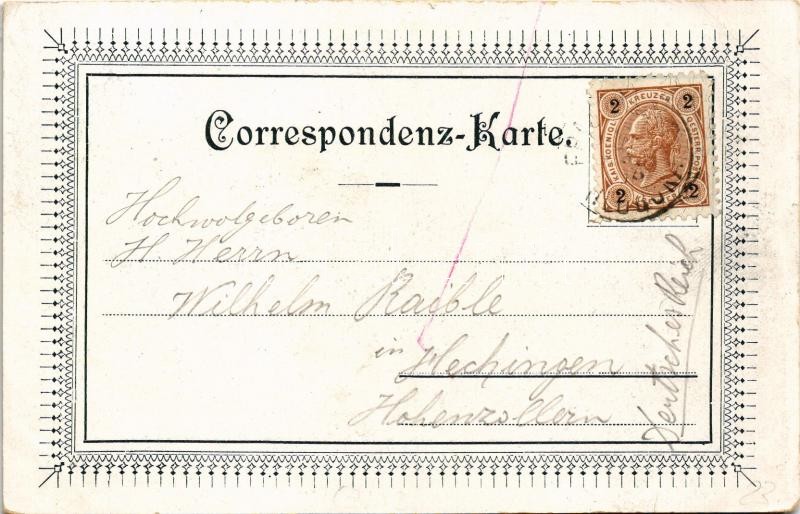 Correspondenz-Karte.
2 KREUZER 2
KAIS. KOENIGL. OESTERR. POST
2 2
Hochwolgeboren
H. Herrn
Wilhelm Raible
in Hechingen
Hohenzollern
Deutsches Reich
23